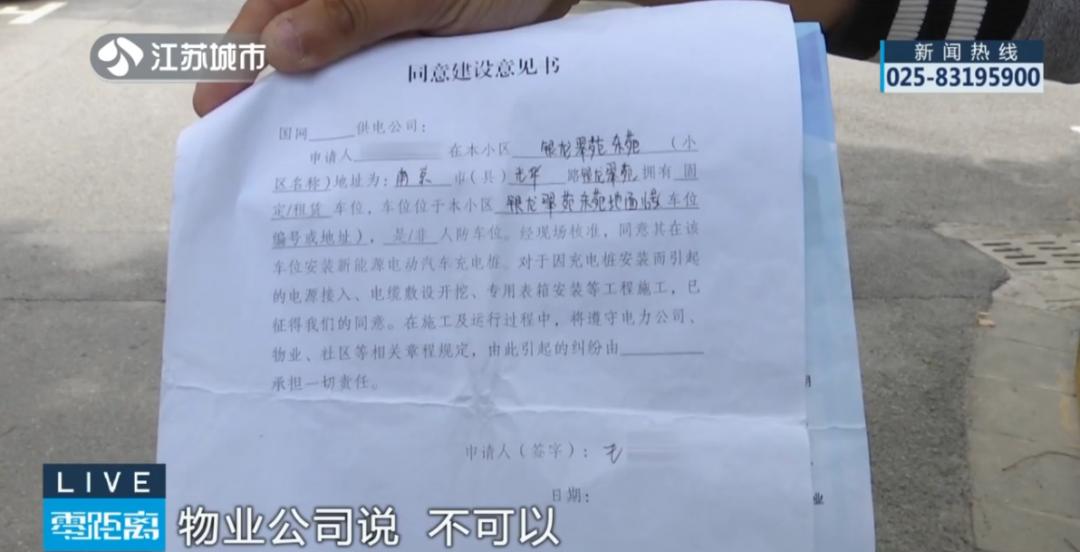 江苏城市
新闻热线
025-83195900
同意建设意见书
国网______供电公司：
申请人 在本小区 银龙翠苑东苑 （小
区名称）地址为：南京 市（县）光华 路银龙翠苑 拥有 固
定/租赁 车位，车位位于本小区 银龙翠苑东苑地面 车位
编号或地址），是/非 人防车位。经现场核准，同意其在该
车位安装新能源电动汽车充电桩。对于因充电桩安装而引起
的电源接入、电缆敷设开挖、专用表箱安装等工程施工，已
征得我们的同意。在施工及运行过程中，将遵守电力公司、
物业、社区等相关章程规定，由此引起的纠纷由______
承担一切责任。
申请人（签字）：
日期：
业
LIVE
零距离
物业公司说 不可以